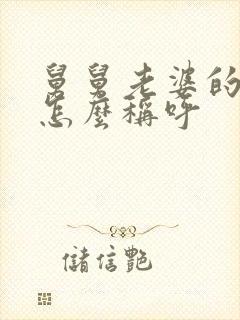 舅舅老婆的
怎麼稱呼
儲信艷